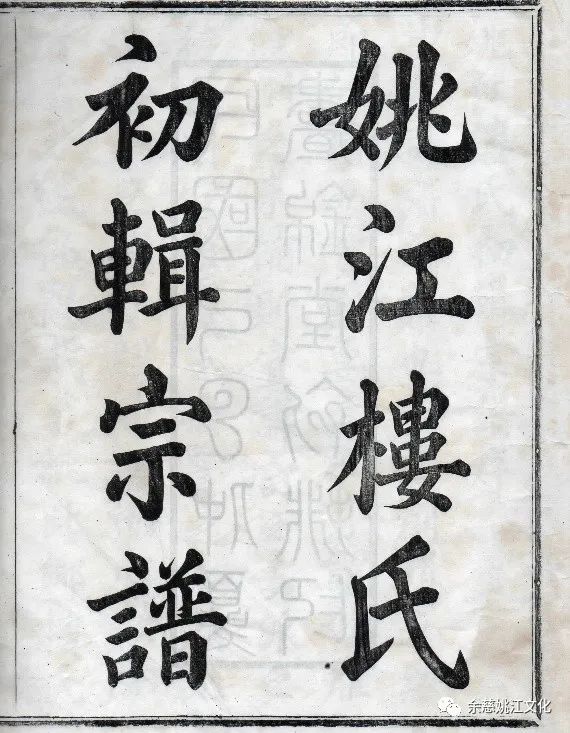 姚江樓氏
初輯宗譜
余慈姚江文化